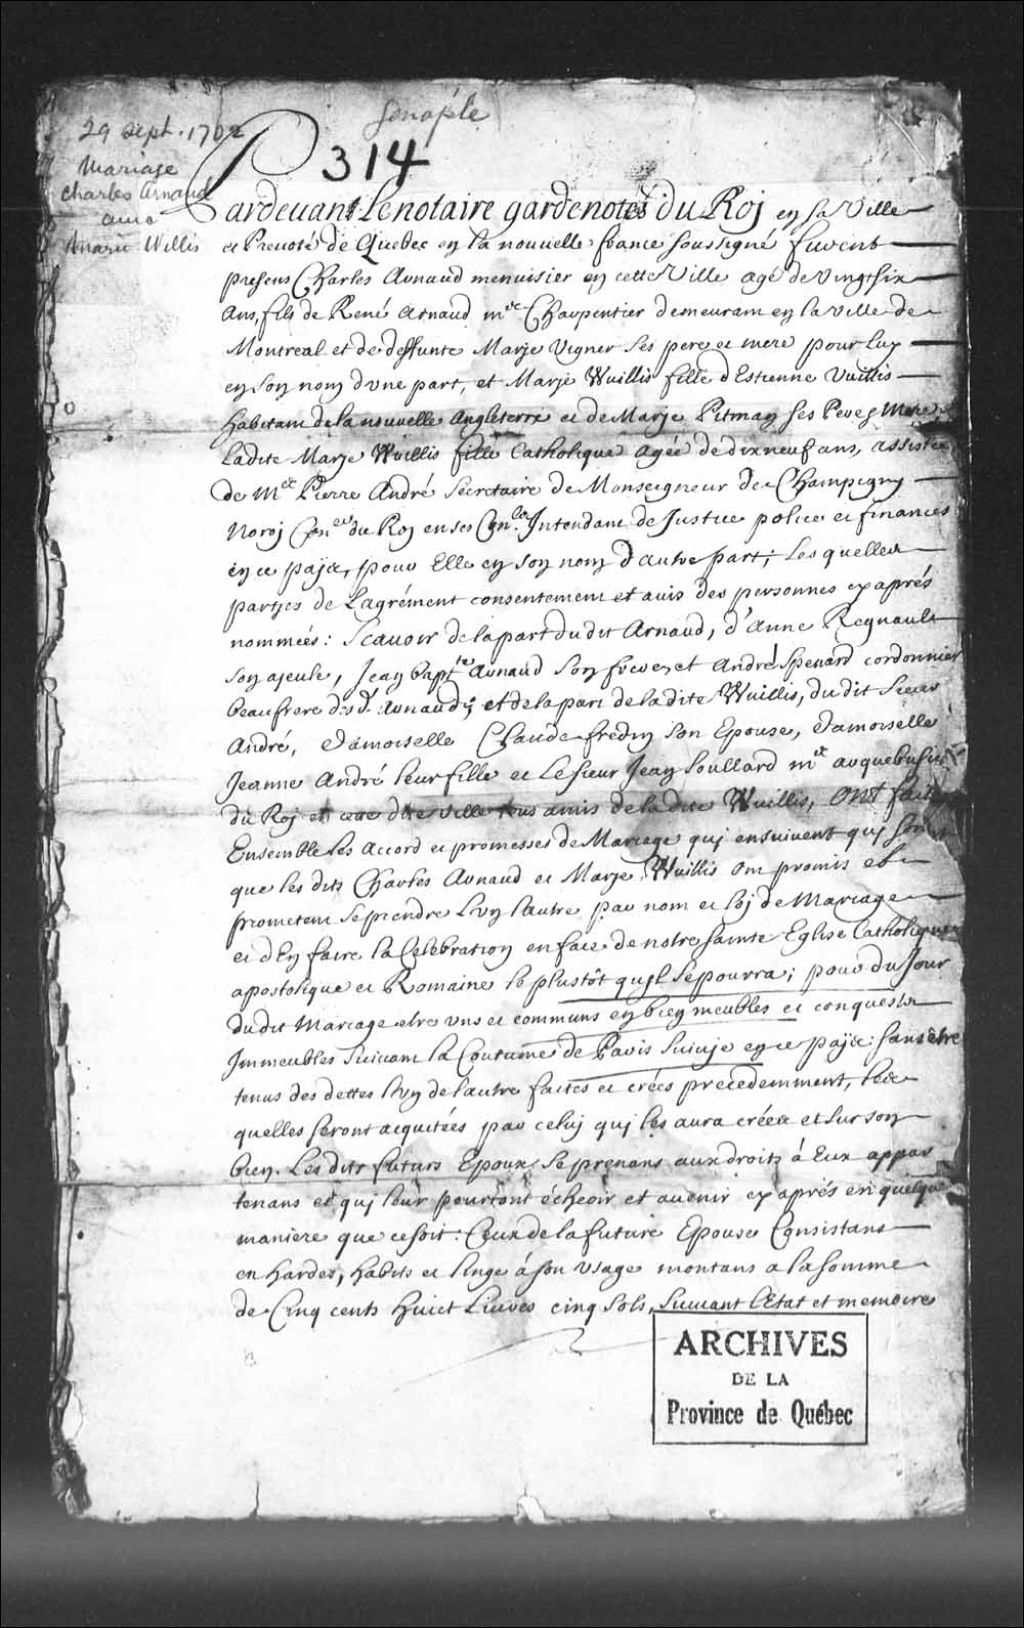 Genaple
29 sept. 1702
314
Mariage
Charles Arnaud
avec
Marie Willis
Pardevant Le notaire gardenotes du Roj en sa Ville
et Prevoté de Quebec en la nouvelle france soussigné furent
presens Charles Arnaud menuisier en cette Ville agé de vingt six
Ans, fils de René Arnaud me Charpentier demeurant en la ville de
Montreal et de deffunte Marje Vigner ses pere et mere pour luy
en son nom d'une part, et Marje Wuillis fille d'Estienne Vuillis
habitant de la nouvelle Angleterre et de Marje Pitman ses Pere & Mere
Ladite Marje Wuillis fille Catholique agée de dix neuf ans, assistée
de Me Pierre André Secretaire de Monseigneur de Champigny
Noroj Coner du Roj en ses Conls Intendant de Justice police et finances
en ce païs, pour Elle en son nom d'autre part; Lesquelles
partjes de L'agrément consentement et avis des personnes cy aprés
nommées: Scavoir de la part du dit Arnaud, d'Anne Regnault
son ajeule, Jean baptte Arnaud son frere, et André Spenard cordonnier
beaufrere d. d. Arnaud; et de la part de la dite Wuillis, du dit Sieur
André, damoiselle Claude fredin son Epouse, damoiselle
Jeanne André leur fille et Le sieur Jean Soullard me arquebusier
du Roj en cette dite ville tous amis de la dite Wuillis, Ont fait
Ensemble les accord et promesses de Mariage quj ensuivent quj sont
que les dits Charles Arnaud et Marje Wuillis ont promis et
prometent se prendre l'un l'autre par nom et loj de Mariage
et d'En faire la Celebration en face de nostre sainte Eglise Catholique
apostolique et Romaine le plustôt qu'jl se pourra; pour du Jour
du dit Mariage etre uns et communs en bien meubles et conquests
Immeubles suivant la Coutume de Paris suivje en ce païs: sans être
tenus des dettes l'un de l'autre faites et crées precedemment, les
quelles seront acquitées par celuj quj les aura créés et sur son
bien. Les dits futurs Epoux se prenans aux droits à Eux appar
tenans et quj leur pourront écheoir et avenir cy aprés en quelque
maniere que ce soit: Ceux de la future Epouse Consistans
en hardes, habits et linge à son usage montans a la somme
de Cinq cents huict Livres cinq sols, suivant l'Etat et memoire
ARCHIVES
DE LA
Province de Québec